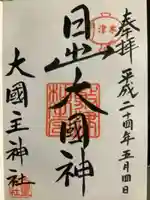 奉拝
平成二十四年五月四日
日出大國神
大國主神社